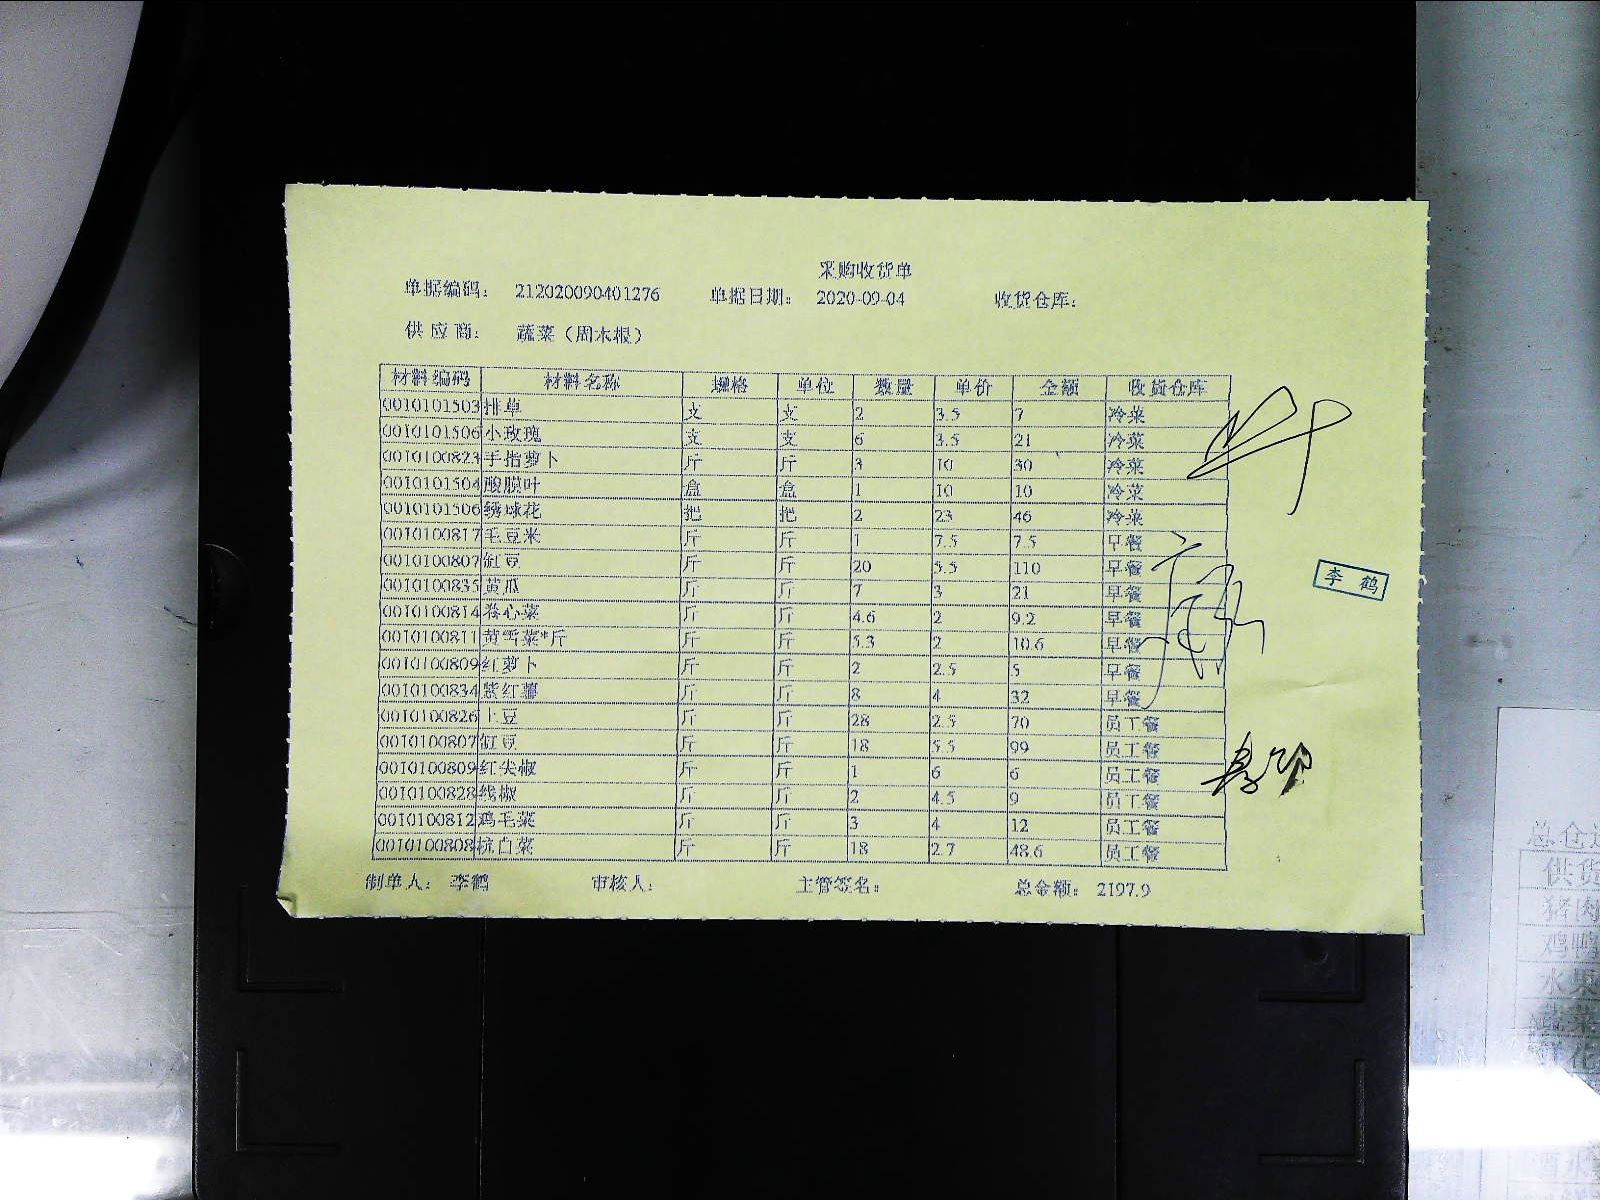 采购收货单
单据编码： 212020090401276 单据日期： 2020-09-04 收货仓库：
供应商： 蔬菜（周木根）
材料编码 材料名称 规格 单位 数量 单价 金额 收货仓库
0010101503 排草 支 支 2 3.5 7 冷菜
0010101506 小玫瑰 支 支 6 3.5 21 冷菜
0010100823 手指萝卜 斤 斤 3 10 30 冷菜
0010101504 酸膜叶 盒 盒 1 10 10 冷菜
0010101506 绣球花 把 把 2 23 46 冷菜
0010100817 毛豆米 斤 斤 1 7.5 7.5 早餐
0010100807 缸豆 斤 斤 20 5.5 110 早餐
0010100835 黄瓜 斤 斤 7 3 21 早餐
0010100814 卷心菜 斤 斤 4.6 2 9.2 早餐
0010100811 黄雪菜*斤 斤 斤 5.3 2 10.6 早餐
0010100809 红萝卜 斤 斤 2 2.5 5 早餐
0010100834 紫红薯 斤 斤 8 4 32 早餐
0010100826 土豆 斤 斤 28 2.5 70 员工餐
0010100807 缸豆 斤 斤 18 5.5 99 员工餐
0010100809 红尖椒 斤 斤 1 6 6 员工餐
0010100828 线椒 斤 斤 2 4.5 9 员工餐
0010100812 鸡毛菜 斤 斤 3 4 12 员工餐
0010100808 杭白菜 斤 斤 18 2.7 48.6 员工餐
制单人： 李鹤 审核人： 主管签名： 总金额： 2197.9
李鹤
总仓
供货
猪肉
鸡鸭
水果
蔬菜
鲜花
酒水